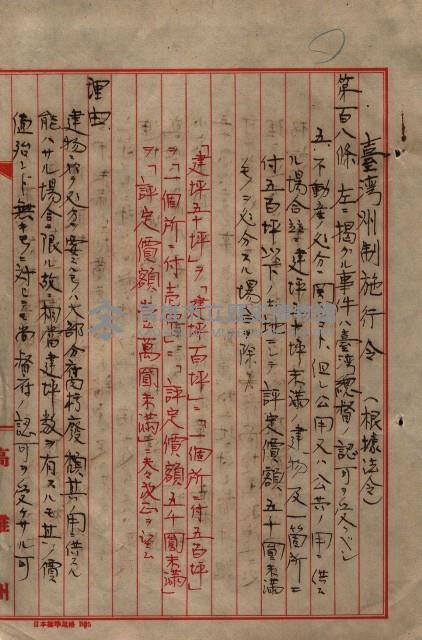 臺灣州制施行令 (根據法令)
第百八條 左ニ揭クル事件ハ臺灣總督ノ認可ヲ受クベシ
五、不動産ノ処分ニ関スルコト 但シ公用又ハ公共ノ用ニ供スル
場合並ニ建坪五十坪未満ノ建物及一箇所ニ
付五百坪以下ノ土地ニシテ評定價額五千圓未満ノ
モノヲ処分スル場合ヲ除ク
「建坪五十坪」ヲ「建坪百坪」ニ「一個所ニ付五百坪」
ヲ「一個所ニ付壱
」ニ「評定價額五千圓未満」
ヲ「評定價額
萬圓未満」ニ
改正ヲ望ム
理由
建物
処分ヲ要スルモノハ大部分腐朽廢
其ノ用ニ供スル
能ハサル場合ニ限ル故ニ相當建坪数ヲ有スルモ其ノ價
値殆ンド無キモノニ対シテモ尚督府ノ認可ヲ受ケサル可
高雄州
日本標準規格 B4